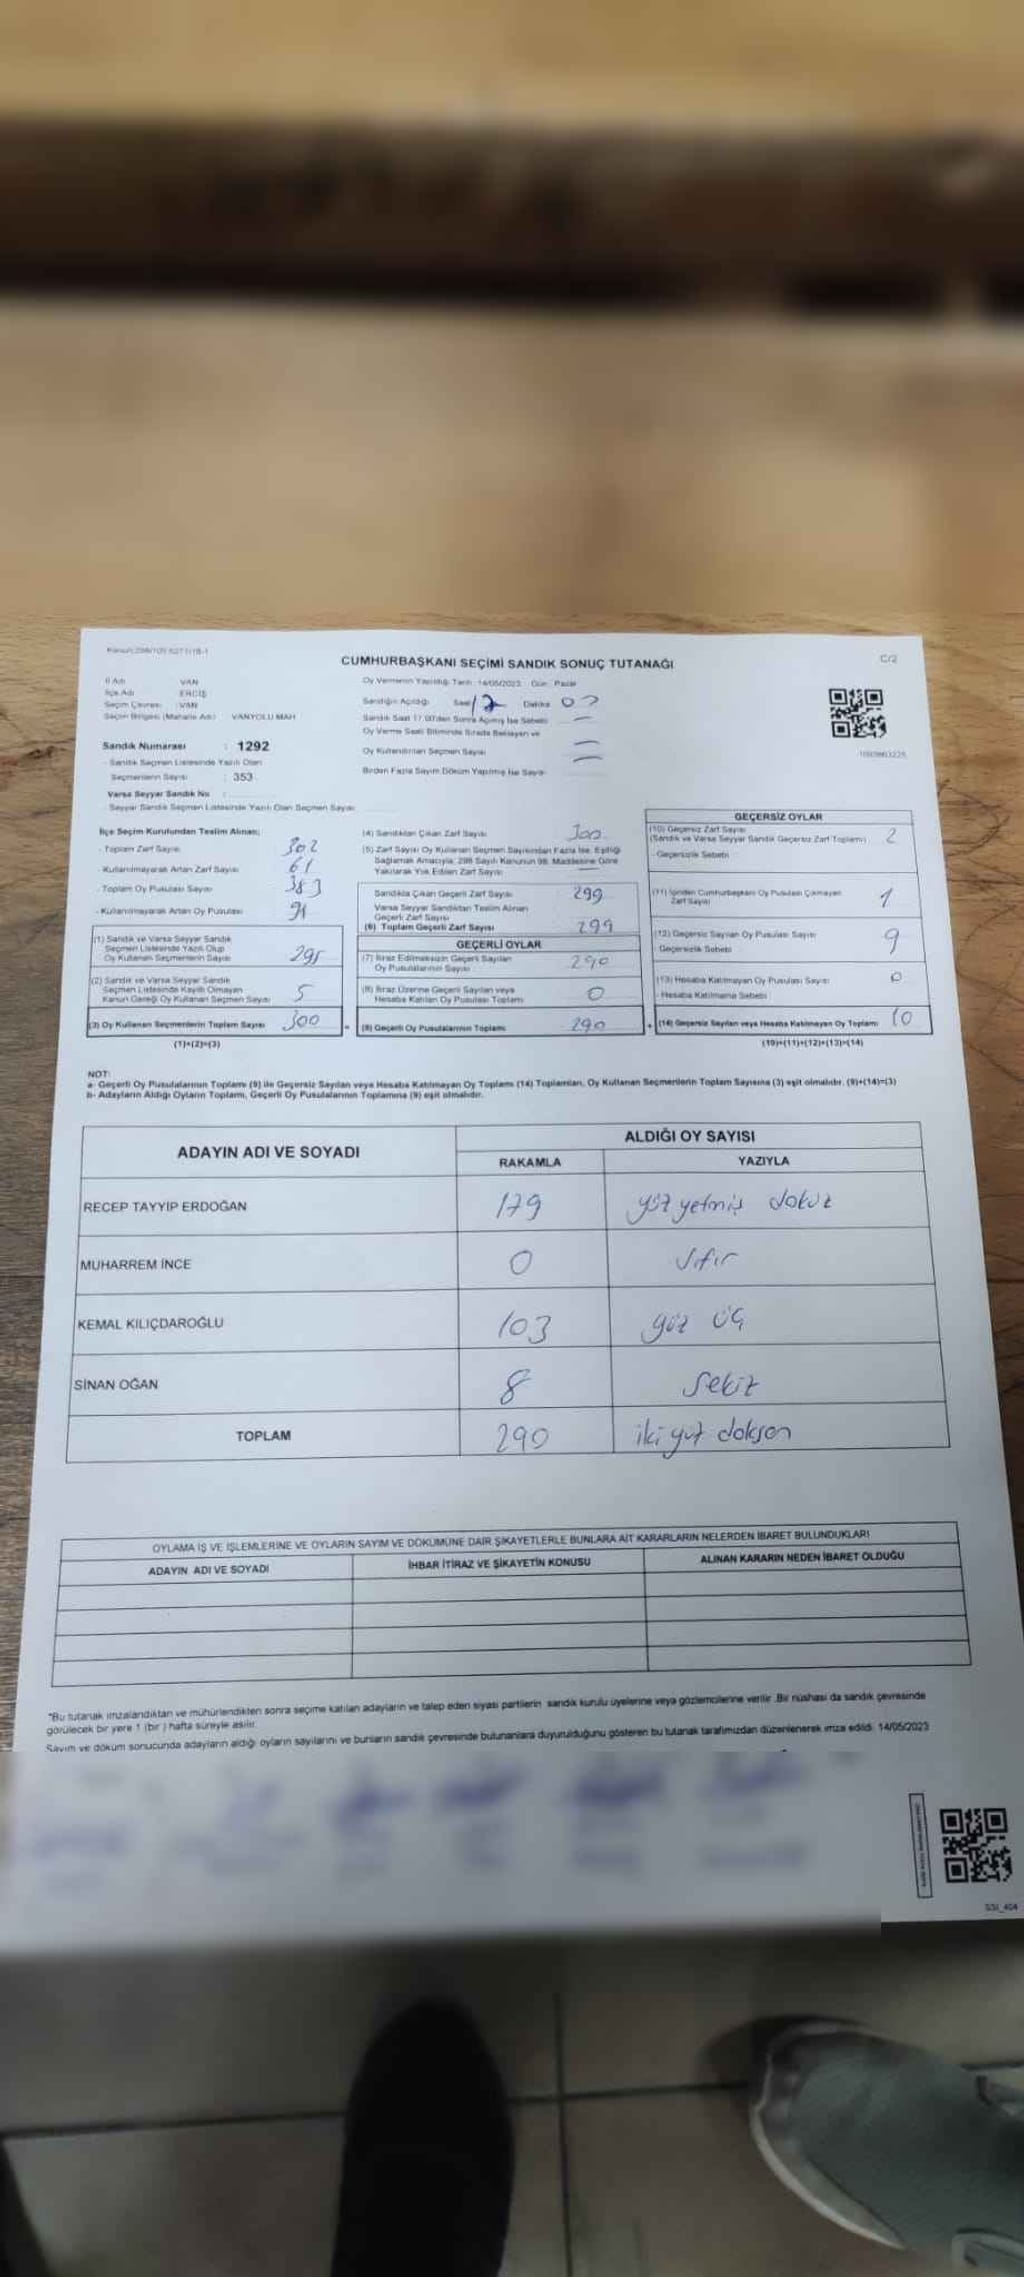 CUMHURBAŞKANI SEÇİMİ SANDIK SONUÇ TUTANAĞI
C/2
İl Adı VAN
İlçe Adı ERCİŞ
Seçim Çevresi : VAN
Seçim Bölgesi (Mahalle Adı) VANYOLU MAH
Sandık Numarası : 1292
- Sandık Seçmen Listesinde Yazılı Olan
Seçmenlerin Sayısı : 353
Varsa Seyyar Sandık No :
- Seyyar Sandık Seçmen Listesinde Yazılı Olan Seçmen Sayısı
Oy Vermenin Yapıldığı Tarih : 14/05/2023 Gün : Pazar
Sandığın Açıldığı Saat Dakika
Sandık Saat 17.00'den Sonra Açılmış İse Sebebi
Oy Verme Saati Bitiminde Sırada Bekleyen ve
Oy Kullandırılan Seçmen Sayısı
Birden Fazla Sayım Döküm Yapılmış İse Sayısı
İlçe Seçim Kurulundan Teslim Alınan;
- Toplam Zarf Sayısı 302
- Kullanılmayarak Artan Zarf Sayısı 61
- Toplam Oy Pusulası Sayısı 383
- Kullanılmayarak Artan Oy Pusulası 91
(1) Sandık ve Varsa Seyyar Sandık
Seçmen Listesinde Yazılı Olup
Oy Kullanan Seçmenlerin Sayısı 295
(2) Sandık ve Varsa Seyyar Sandık
Seçmen Listesinde Kayıtlı Olmayan
Kanun Gereği Oy Kullanan Seçmen Sayısı 5
(3) Oy Kullanan Seçmenlerin Toplam Sayısı 300
(1)+(2)=(3)
(4) Sandıktan Çıkan Zarf Sayısı 300
(5) Zarf Sayısı Oy Kullanan Seçmen Sayısından Fazla İse, Eşitliği
Sağlamak Amacıyla, 298 Sayılı Kanunun 98. Maddesine Göre
Yakılarak Yok Edilen Zarf Sayısı —
Sandıkta Çıkan Geçerli Zarf Sayısı 299
Varsa Seyyar Sandıktan Teslim Alınan
Geçerli Zarf Sayısı
(6) Toplam Geçerli Zarf Sayısı 299
GEÇERLİ OYLAR
(7) İtiraz Edilmeksizin Geçerli Sayılan
Oy Pusulalarının Sayısı 290
(8) İtiraz Üzerine Geçerli Sayılan veya
Hesaba Katılan Oy Pusulası Toplamı 0
(9) Geçerli Oy Pusulalarının Toplamı 290
GEÇERSİZ OYLAR
(10) Geçersiz Zarf Sayısı
(Sandık ve Varsa Seyyar Sandık Geçersiz Zarf Toplamı) 2
- Geçersizlik Sebebi
(11) İçinden Cumhurbaşkanı Oy Pusulası Çıkmayan
Zarf Sayısı 1
(12) Geçersiz Sayılan Oy Pusulası Sayısı 9
- Geçersizlik Sebebi
(13) Hesaba Katılmayan Oy Pusulası Sayısı 0
- Hesaba Katılmama Sebebi
(14) Geçersiz Sayılan veya Hesaba Katılmayan Oy Toplamı 10
(10)+(11)+(12)+(13)=(14)
NOT:
a- Geçerli Oy Pusulalarının Toplamı (9) ile Geçersiz Sayılan veya Hesaba Katılmayan Oy Toplamı (14) Toplamları, Oy Kullanan Seçmenlerin Toplam Sayısına (3) eşit olmalıdır. (9)+(14)=(3)
b- Adayların Aldığı Oyların Toplamı, Geçerli Oy Pusulalarının Toplamına (9) eşit olmalıdır.
ADAYIN ADI VE SOYADI ALDIĞI OY SAYISI
RAKAMLA YAZIYLA
RECEP TAYYİP ERDOĞAN 179 yüz yetmiş dokuz
MUHARREM İNCE 0 sıfır
KEMAL KILIÇDAROĞLU 103 yüz üç
SİNAN OĞAN 8 sekiz
TOPLAM 290 iki yüz doksan
OYLAMA İŞ VE İŞLEMLERİNE VE OYLARIN SAYIM VE DÖKÜMÜNE DAİR ŞİKAYETLERLE BUNLARA AİT KARARLARIN NELERDEN İBARET BULUNDUKLARI
ADAYIN ADI VE SOYADI İHBAR İTİRAZ VE ŞİKAYETİN KONUSU ALINAN KARARIN NEDEN İBARET OLDUĞU
"Bu tutanak imzalandıktan ve mühürlendikten sonra seçime katılan adayların ve talep eden siyasi partilerin sandık kurulu üyelerine veya gözlemcilerine verilir. Bir nüshası da sandık çevresinde
görülecek bir yere 1 (bir ) hafta süreyle asılır.
Sayım ve döküm sonucunda adayların aldığı oyların sayılarını ve bunların sandık çevresinde bulunanlara duyurulduğunu gösteren bu tutanak tarafımızdan düzenlenerek imza edildi. 14/05/2023